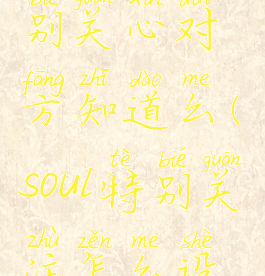 bié guān xīn duì
别关心对
fāng zhī dào me
方知道么(
tè bié guān
soul,特别关
zhù zěn me shè
注怎么设